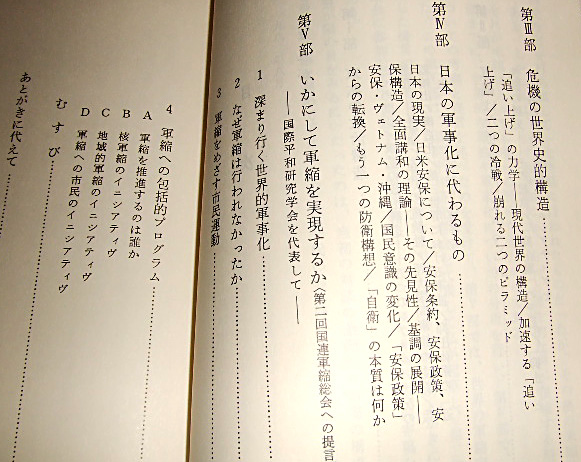 第Ⅲ部 危機の世界史的構造
「追い上げ」の力学――現代世界の構造／加速する「追い
上げ」／二つの冷戦／崩れる二つのピラミッド
第Ⅳ部 日本の軍事化に代わるもの
日本の現実／日米安保について／安保条約、安保政策、安
保構造／全面講和の理論――その先見性／基調の展開――
安保・ヴェトナム・沖縄／国民意識の変化／「安保政策」
からの転換／もう一つの防衛構想／「自衛」の本質は何か
第Ⅴ部 いかにして軍縮を実現するか〈第二回国連軍縮総会への提言
――国際平和研究学会を代表して――
1 深まり行く世界的軍事化
2 なぜ軍縮は行われなかったか
3 軍縮をめざす市民運動
4 軍縮への包括的プログラム
A 軍縮を推進するのは誰か
B 核軍縮のイニシアティヴ
C 地域的軍縮のイニシアティヴ
D 軍縮への市民のイニシアティヴ
むすび
あとがきに代えて